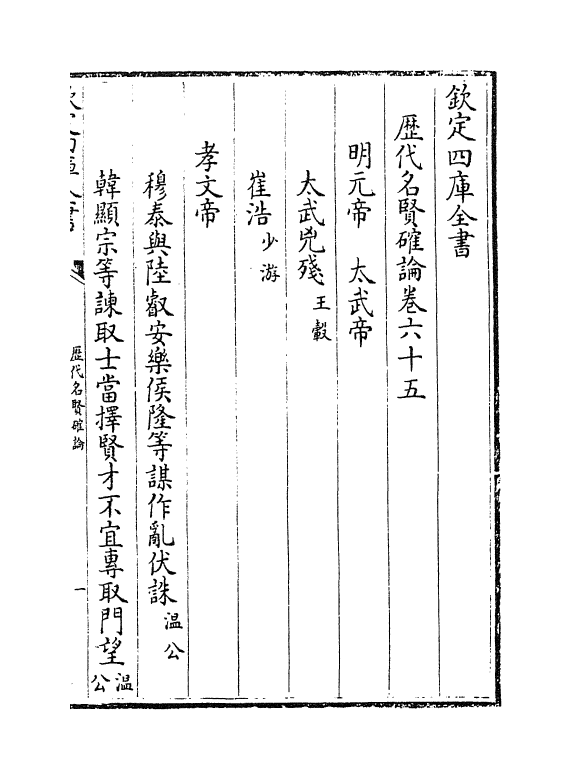 欽定四庫全書
歴代名賢確論卷六十五
明元帝　太武帝
太武兇殘王轂
崔浩少游
孝文帝
穆泰與陸叡安樂侯隆等謀作亂伏誅温公
韓顯宗等諫取士當擇賢才不宜專取門望温公
欽定四庫全書
歴代名賢確論
一